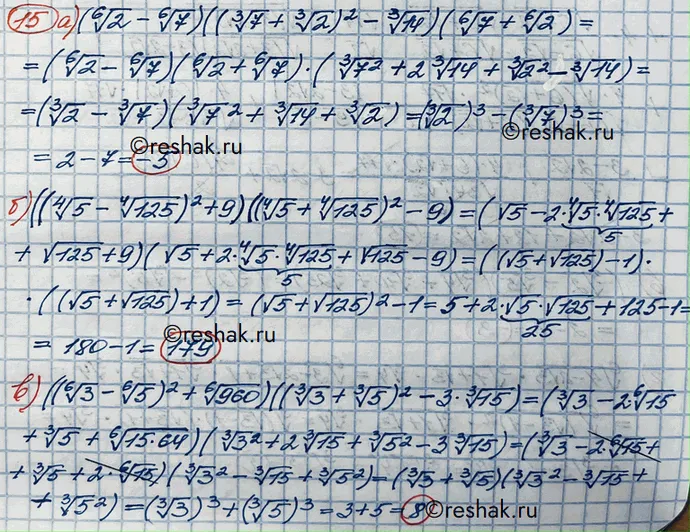 15 а) (⁶√2 − ⁶√7)((³√7 + ³√2)² − ³√14)(⁶√7 + ⁶√2) =
= (⁶√2 − ⁶√7)(⁶√2 + ⁶√7)·(³√7² + 2 ³√14 + ³√2² − ³√14) =
= (³√2 − ³√7)(³√7² + ³√14 + ³√2) = (³√2)³ − (³√7)³ =
©reshak.ru
©reshak.ru
= 2 − 7 = −5
б) ((⁴√5 − ⁴√125)² + 9)((⁴√5 + ⁴√125)² − 9) = (√5 − 2·⁴√5·⁴√125 +
5
+ √125 + 9)(√5 + 2·⁴√5·⁴√125 + √125 − 9) = ((√5 + √125) − 1)·
5
· ((√5 + √125) + 1) = (√5 + √125)² − 1 = 5 + 2·√5·√125 + 125 − 1 =
25
©reshak.ru
= 180 − 1 = 179
в) ((⁶√3 − ⁶√5)² + ⁶√960)((³√3 + ³√5)² − 3·³√15) = (³√3 − 2 ⁶√15
+ ³√5 + ⁶√15·64)(³√3² + 2 ³√15 + ³√5² − 3 ³√15) = (³√3 − 2·⁶√15 +
+ ³√5 + 2·⁶√15)(³√3² − ³√15 + ³√5²) = (³√3 + ³√5)(³√3² − ³√15 +
+ ³√5²) = (³√3)³ + (³√5)³ = 3 + 5 = 8
©reshak.ru